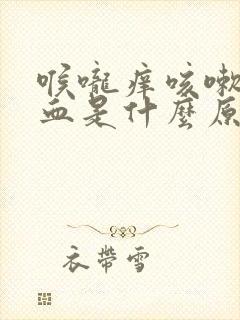 喉嚨痒咳嗽
血是什麼原
衣帶雪